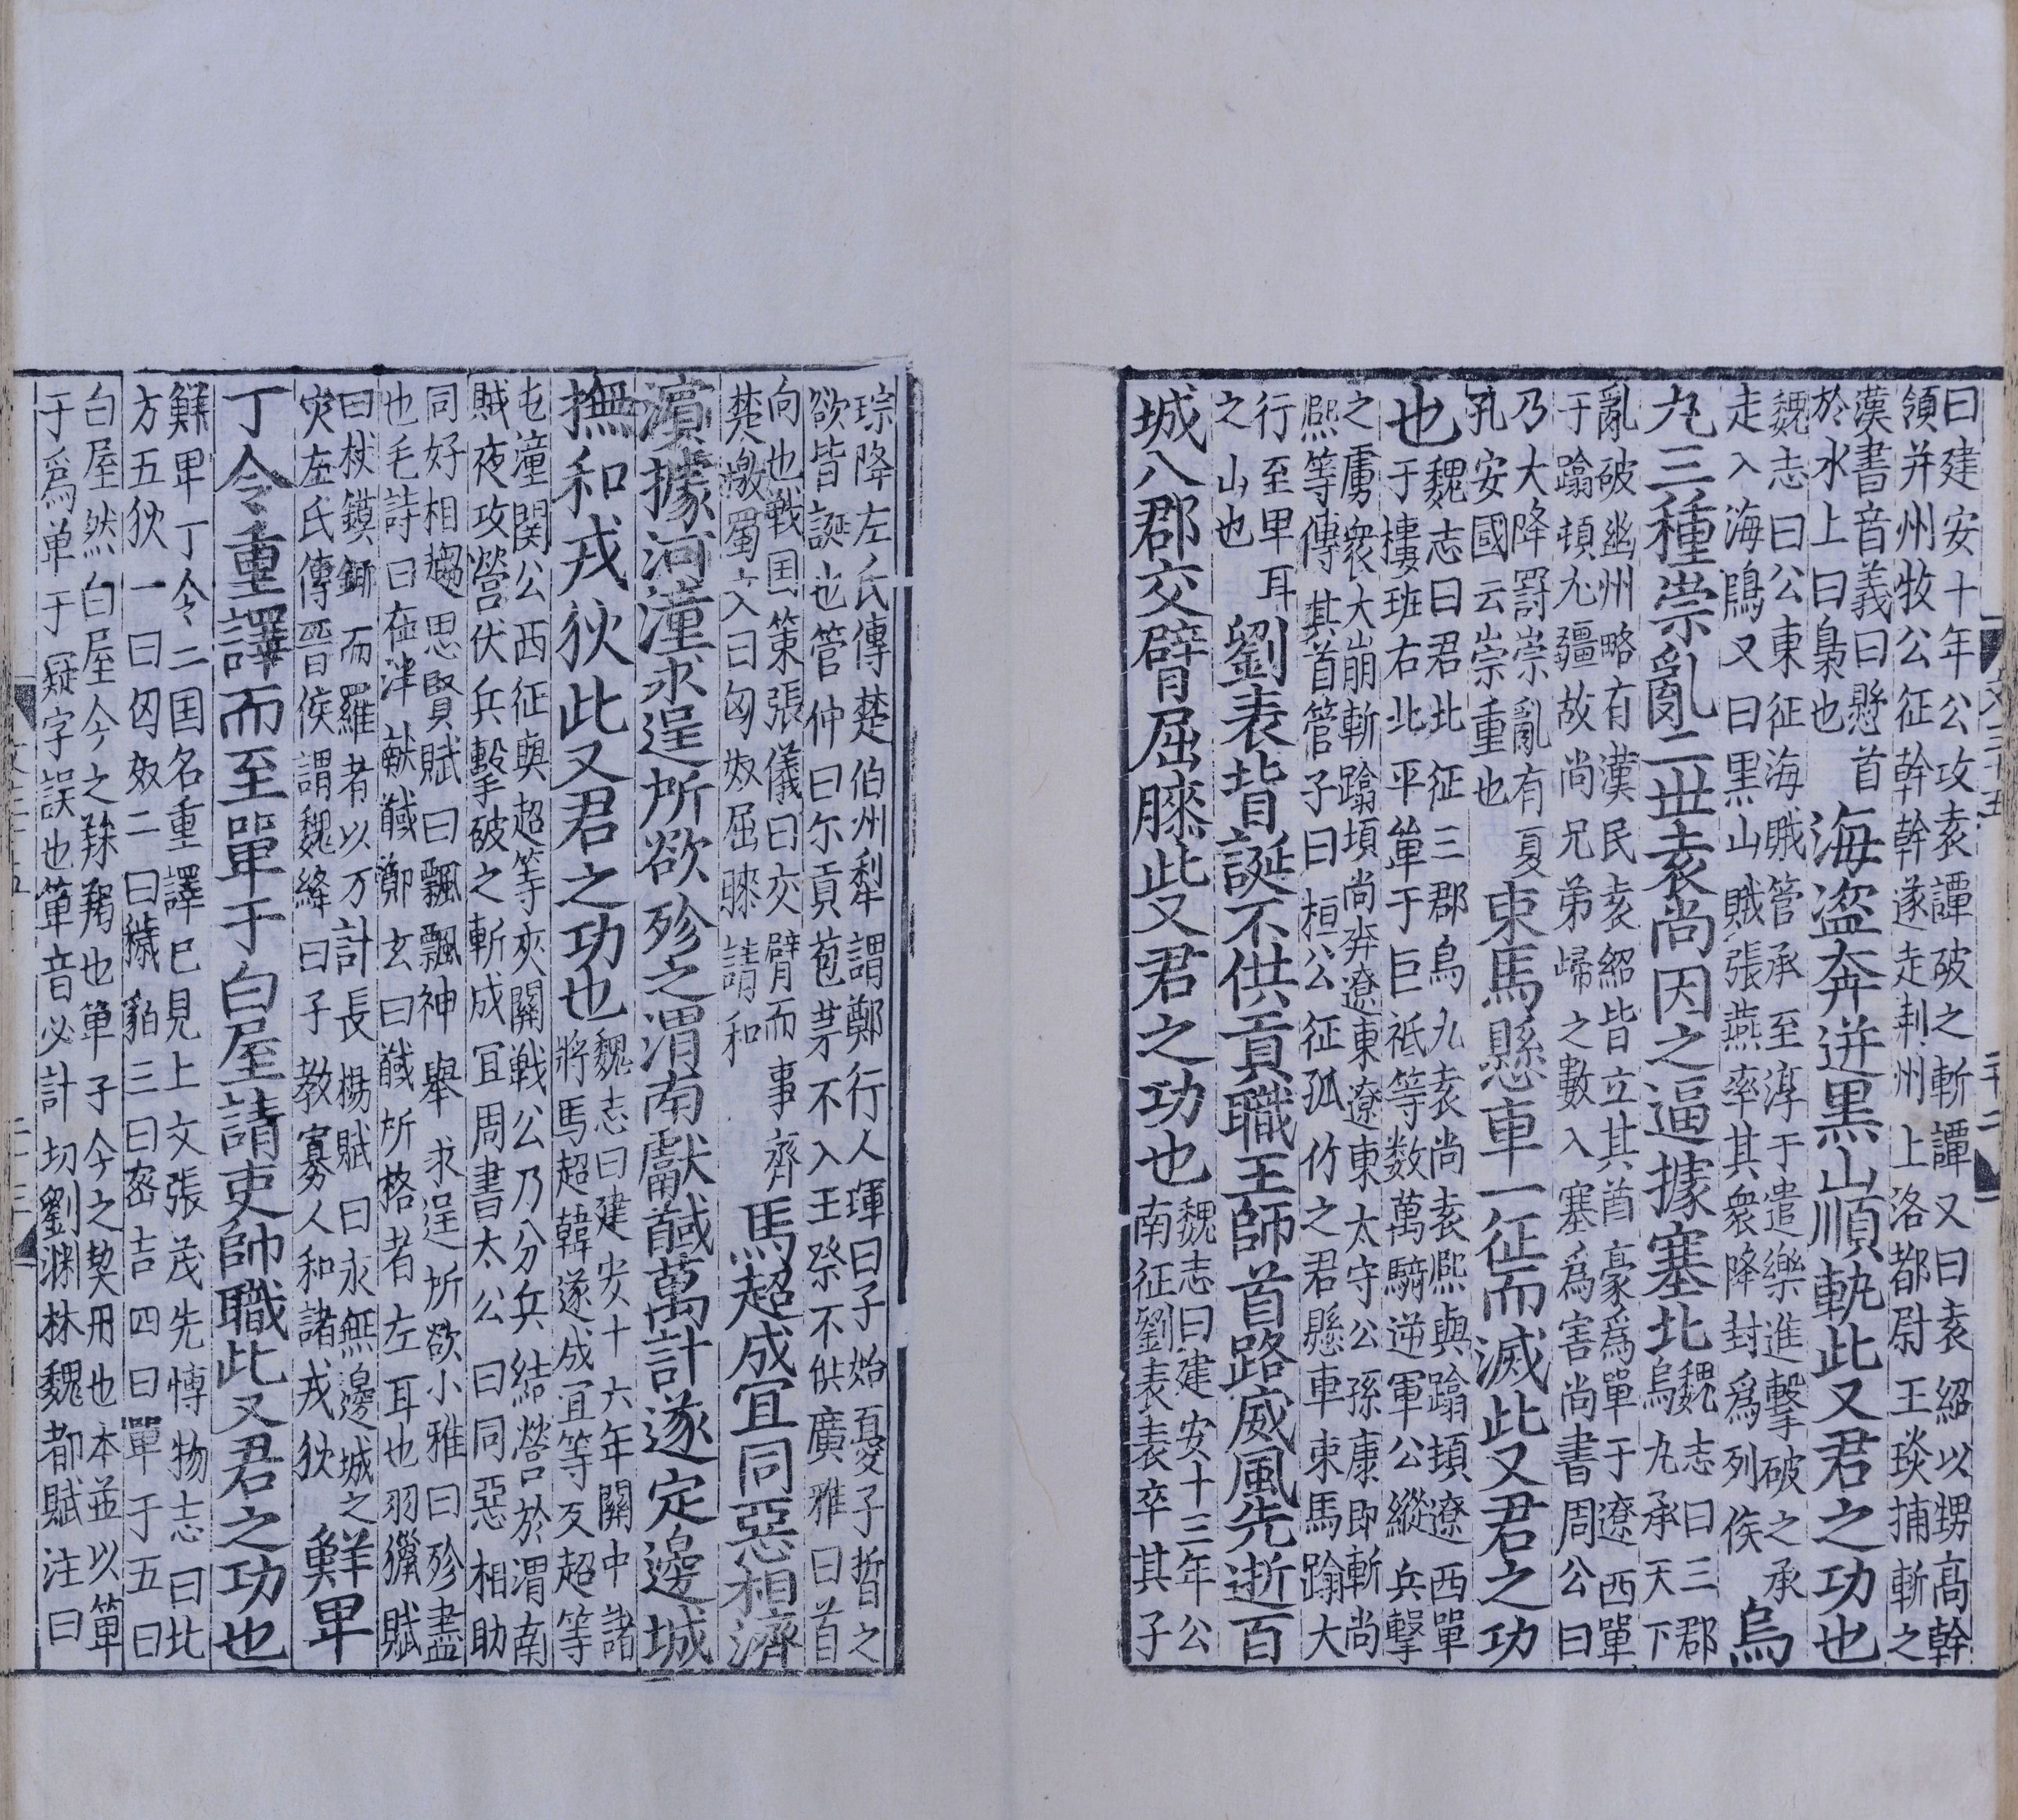 曰建安十年公攻袁譚破之斬譚又曰袁紹以甥高幹
領并州牧公征幹幹遂走荆州上洛都尉王琰捕斬之
漢書音義曰懸首
於水上曰梟也
海盗奔迸黒山順軌此又君之功也
魏志曰公東征海賊管承至淳于遣樂進擊破之承
走入海隝又曰黒山賊張燕率其衆降封爲列侯
烏
丸三種崇亂二丗袁尚因之逼據塞北
魏志曰三郡
烏丸承天下
亂破幽州略有漢民袁紹皆立其酋豪爲單于遼西單
于蹋頓尤疆故尚兄弟歸之數入塞爲害尚書周公曰
乃大降罸崇亂有夏
孔安國云崇重也
束馬懸車一征而滅此又君之功
也
魏志曰君北征三郡烏丸袁尚袁熈與蹋頓遼西單
于樓班右北平單于巨祗等数萬騎逆軍公縱兵擊
之虜衆大崩斬蹋頓尚奔遼東遼東太守公孫康即斬尚
熈等傳其首管子曰桓公征孤竹之君懸車束馬踰大
行至卑耳
之山也
劉表背誕不供貢職王師首路威風先逝百
城八郡交臂屈膝此又君之功也
魏志曰建安十三年公
南征劉表表卒其子
琮降左氏傳楚伯州犁謂鄭行人琿曰子姑憂子晳之
欲皆誕也管仲曰尓貢苞茅不入王祭不供廣雅曰首
向也戰国策張儀曰交臂而事齊
楚檄蜀文曰匈奴屈膝請和
馬超成宜同惡相濟
濵據河潼求逞所欲殄之渭南獻馘萬計遂定邊城
撫和戎狄此又君之功也
魏志曰建安十六年關中諸
將馬超韓遂成宜等反超等
屯潼関公西征與超等夾關戰公乃分兵結營於渭南
賊夜攻營伏兵擊破之斬成宜周書太公曰同惡相助
同好相趨思賢賦曰飄飄神舉求逞所欲小雅曰殄盡
也毛詩曰在泮献馘鄭玄曰馘所格者左耳也羽獵賦
曰杖鏌鋣而羅者以万計長楊賦曰永無邊城之
灾左氏傳晋侯謂魏絳曰子教寡人和諸戎狄
鮮卑
丁令重譯而至單于白屋請吏帥職此又君之功也
鮮卑丁令二国名重譯已見上文張茂先博物志曰北
方五狄一曰匈奴二曰穢貊三曰宻吉四曰單于五曰
白屋然白屋今之靺鞨也箄子今之契丹也本並以箄
于爲单于疑字誤也箄音必計切劉渊林魏都賦注曰
文三十五
二十二